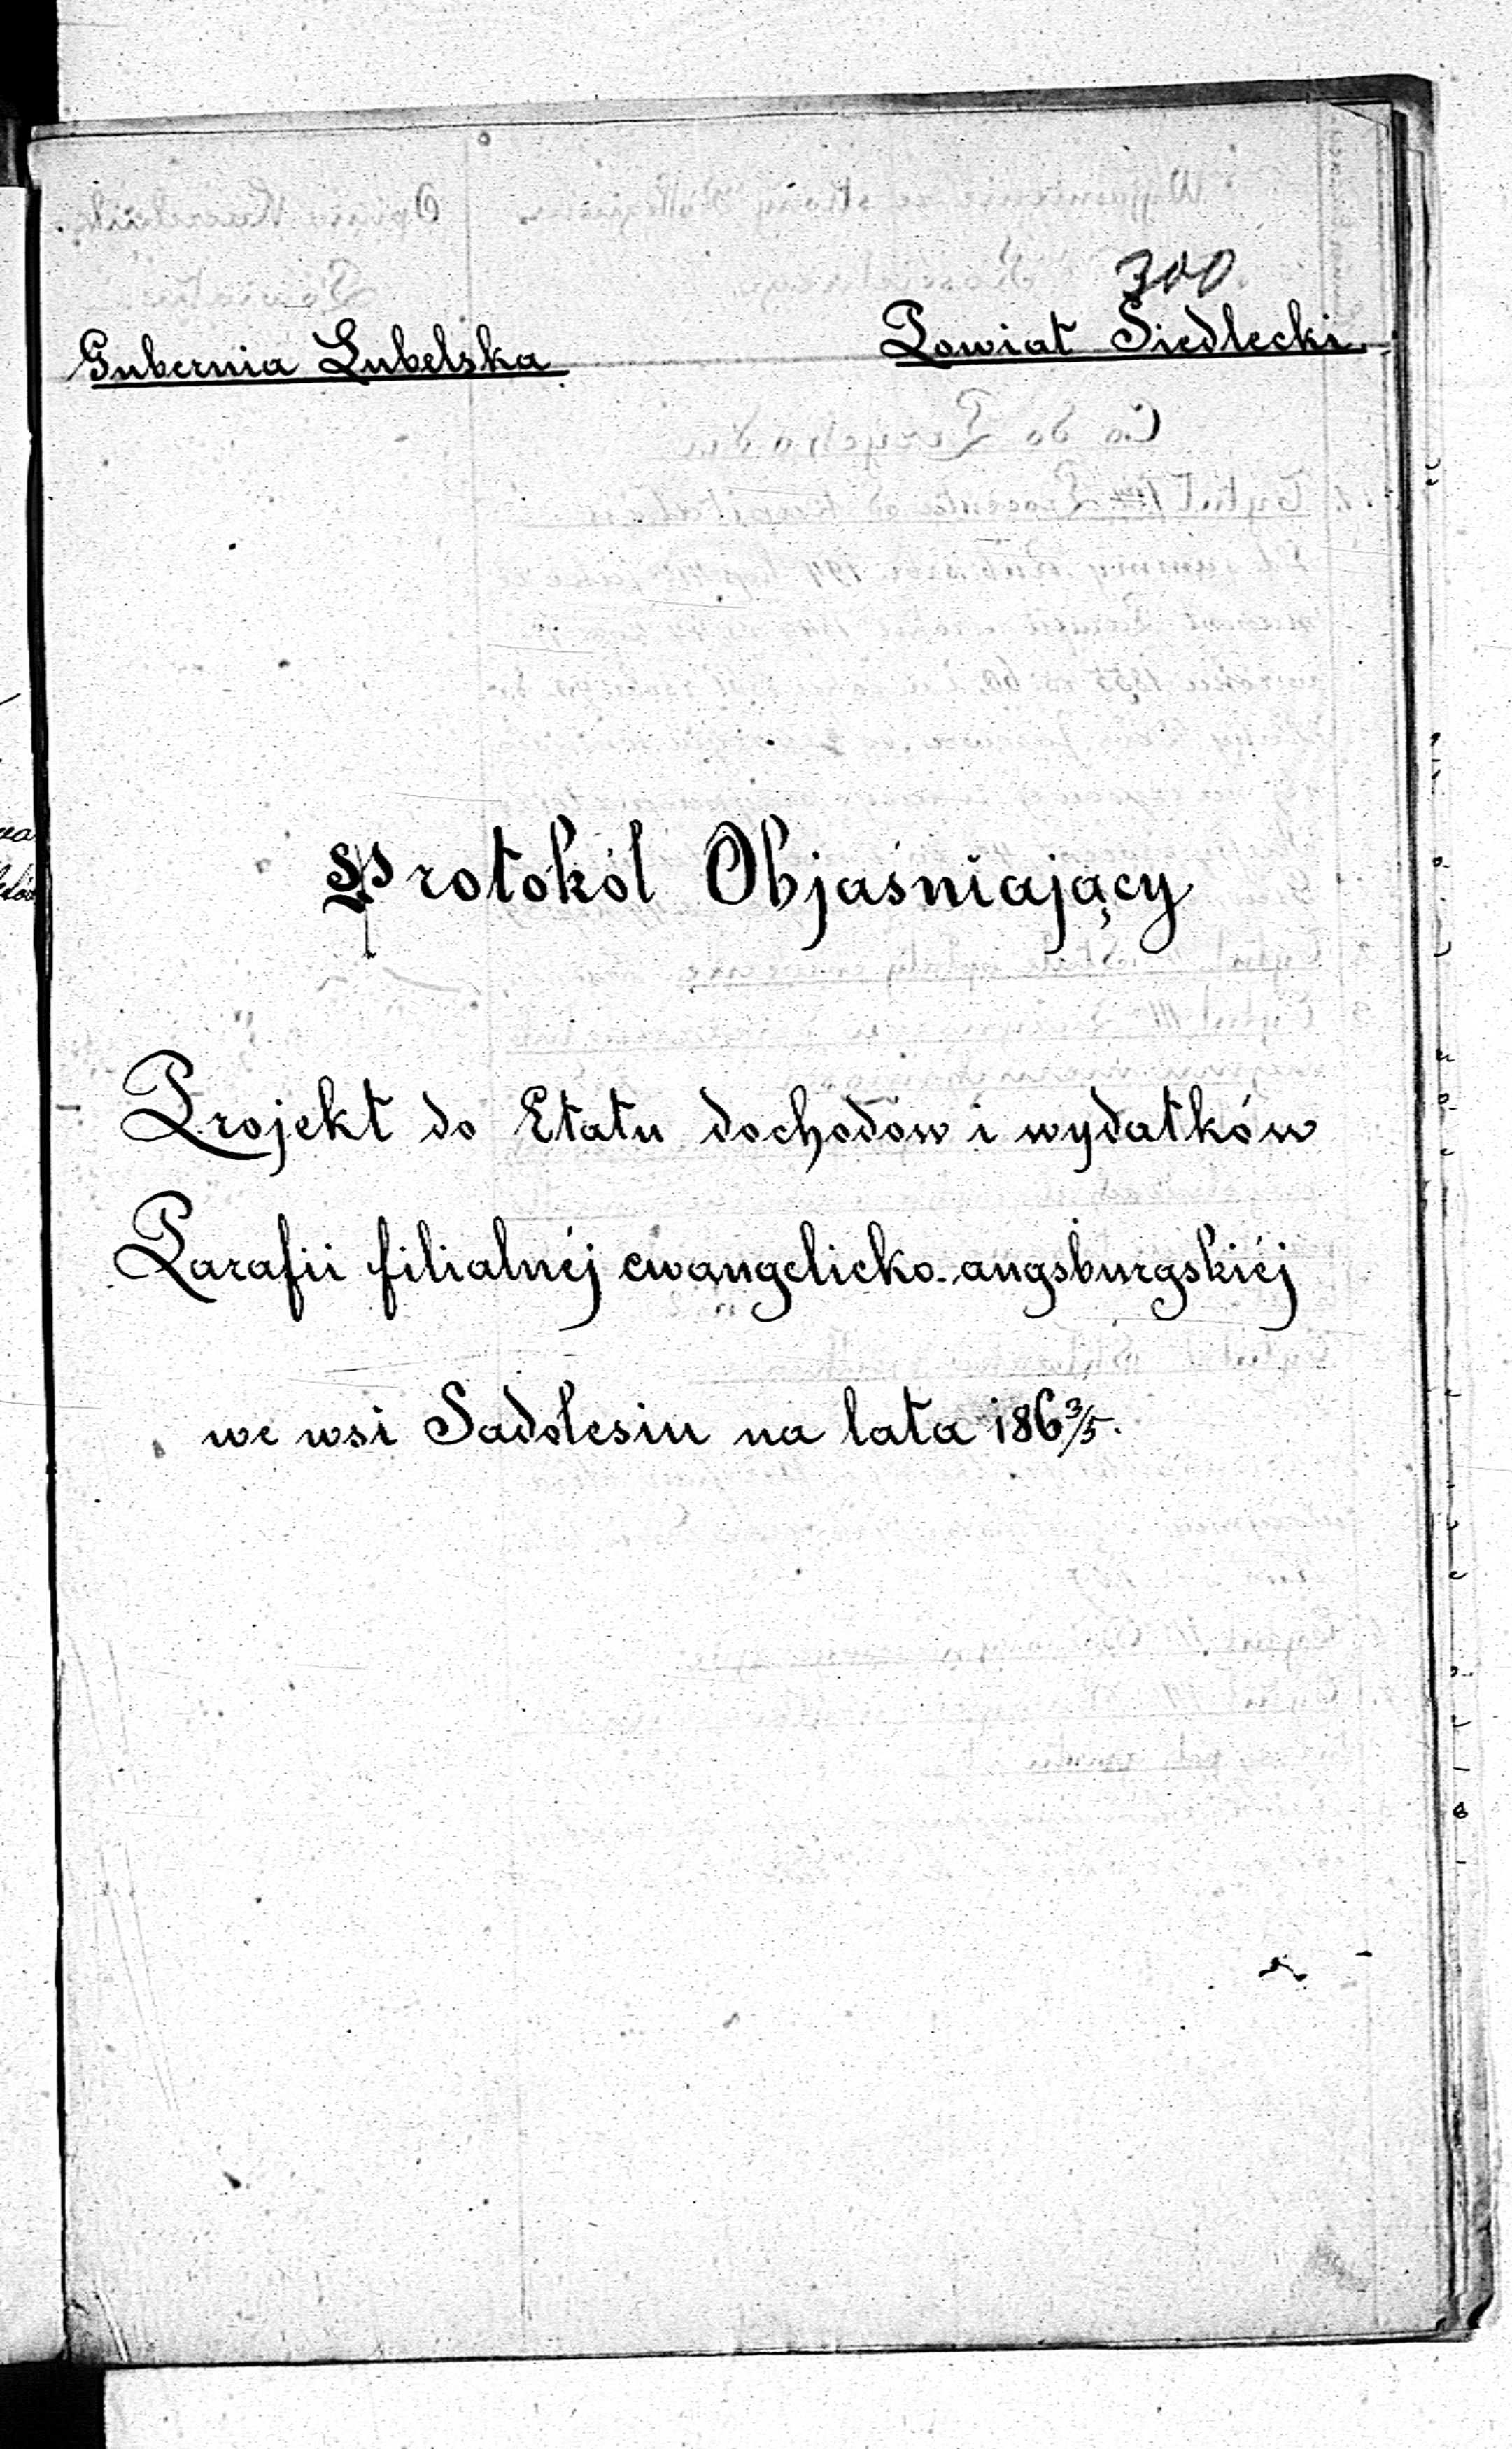 300
Gubernia Lubelska Powiat Siedlecki.
Protokół Objaśniający
Projekt do Etatu dochodów i wydatków
Parafii filialnéj ewangelicko-augsburgskiéj
we wsi Sadolesiu na lata 186 3/5.